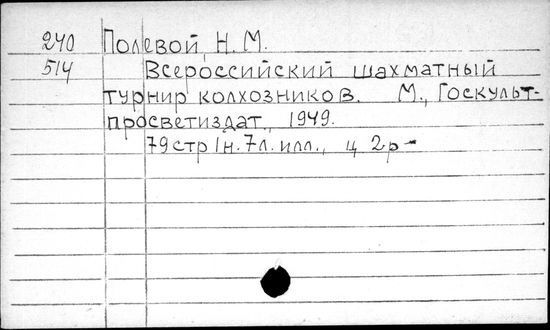 240 Полевой, Н. М.
514 Всероссийский шахматный
турнир колхозников. М., Госкульт-
просветиздат, 1949.
79стр 1н. 7л. илл., ц 2р-